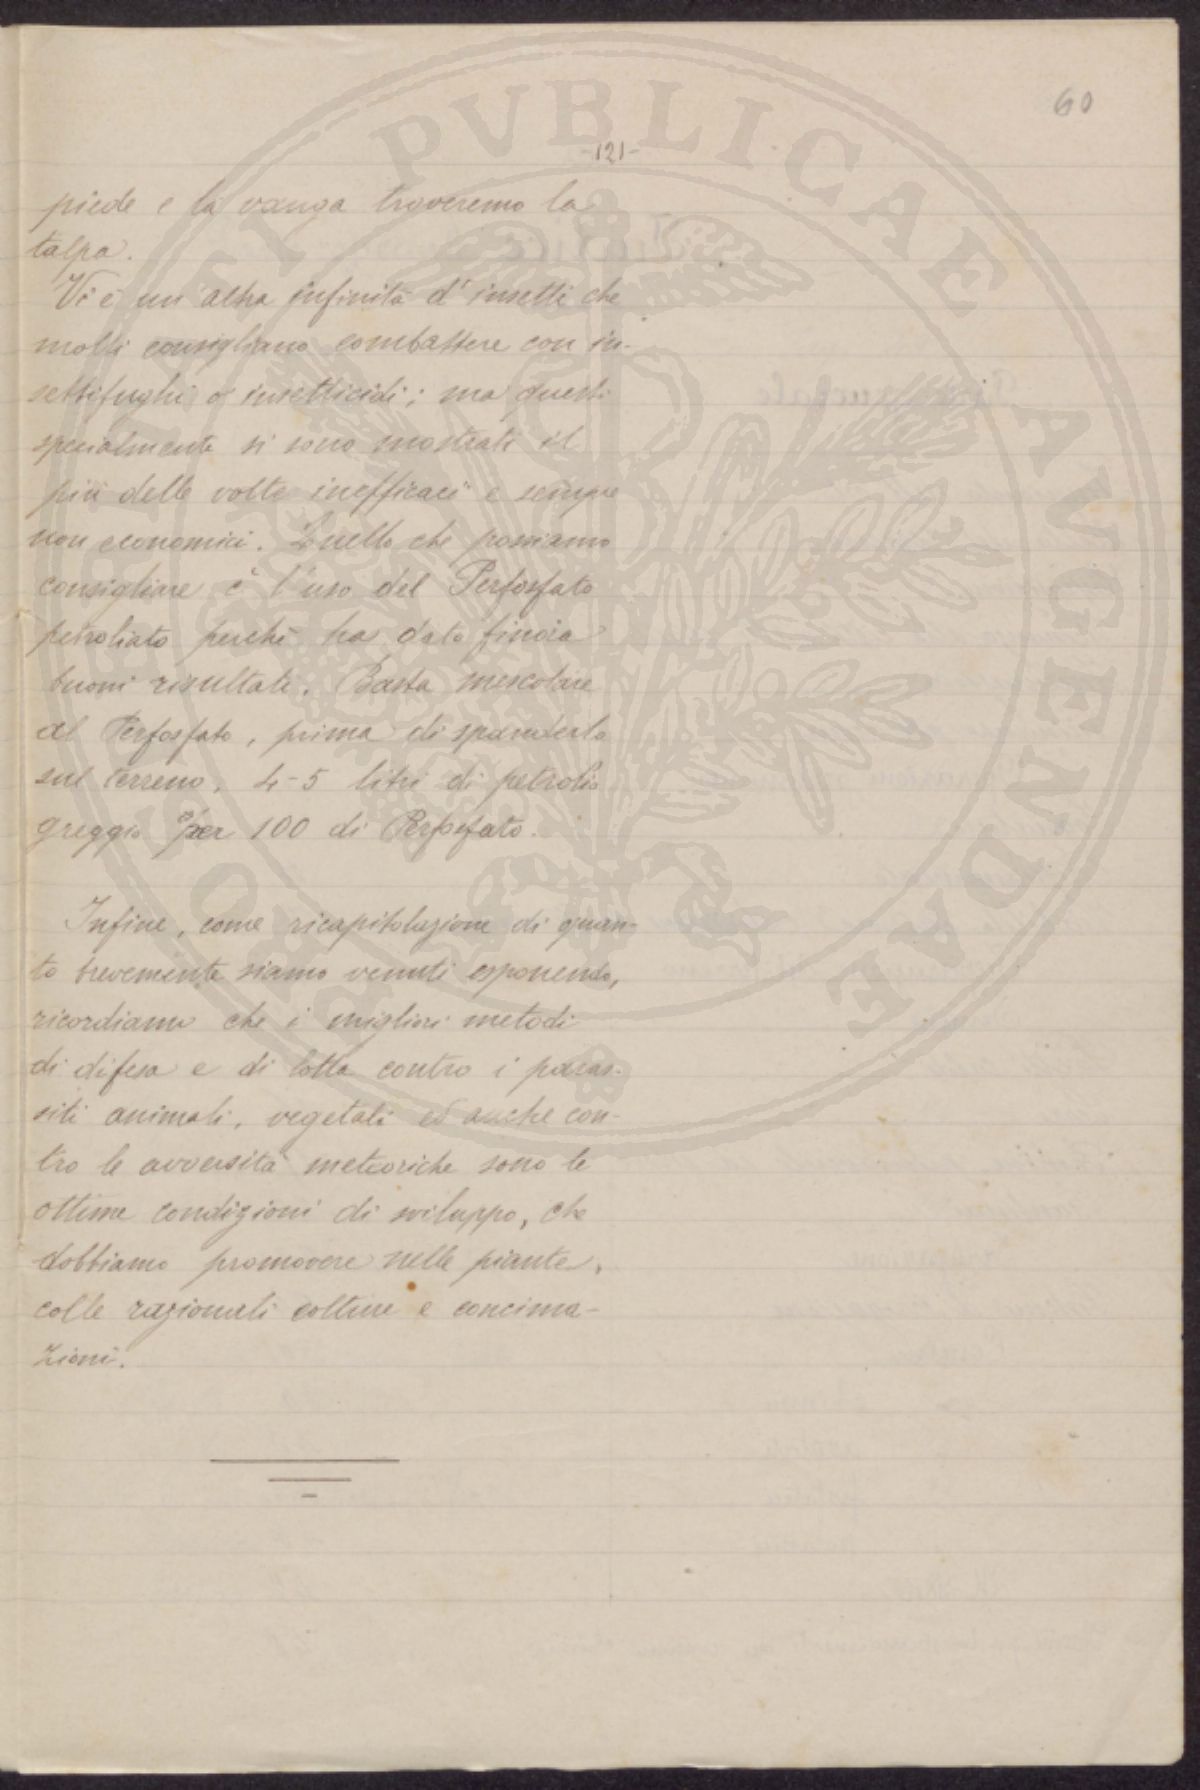 60
-121-
piede e la vanga troveremo la
talpa.
Vi è un'altra infinità d'insetti che
molti consigliano combattere con in-
settifughi o insetticidi; ma questi
specialmente si sono mostrati il
più delle volte inefficaci e sempre
non economici. Quello che possiamo
consigliare è l'uso del Perfosfato
petroliato perché ha dato finora
buoni risultati. Basta mescolare
al Perfosfato, prima di spanderlo
sul terreno, 4-5 litri di petrolio
greggio per 100 di Perfosfato.
Infine, come ricapitolazione di quan-
to brevemente siamo venuti esponendo,
ricordiamo che i migliori metodi
di difesa e di lotta contro i paras-
siti animali, vegetali ed anche con-
tro le avversità meteoriche sono le
ottime condizioni di sviluppo, che
dobbiamo promovere nelle piante,
colle razionali colture e concima-
zioni.
PUBLICAE AVGENDAE